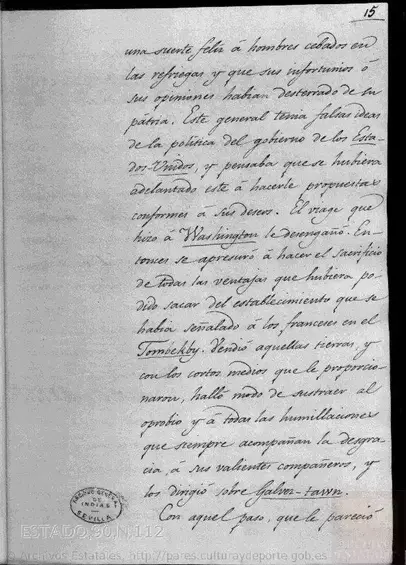 15
una suerte feliz á hombres cebados en
las refriegas y que sus infortunios ó
sus opiniones habian desterrado de su
patria. Este general tenia falsas ideas
de la politica del gobierno de los Esta-
dos-Unidos, y pensaba que se hubiera
adelantado este á hacerle propuestas
conformes a sus deseos. El viage que
hizo á Washington le desengañó. En-
tonces se apresuró á hacer el sacrificio
de todas las ventajas que hubiera po-
dido sacar del establecimiento que se
habia señalado á los franceses en el
Tombekby. Vendió aquellas tierras, y
con los cortos medios que le proporcio-
naron, halló modo de sustraer al
oprobio y á todas las humillaciones
que siempre acompañan la desgra-
cia, a sus valientes compañeros, y
los dirigió sobre Galves-tawn.
Con aquel paso, que le pareció
ARCHIVO GENERAL
DE
INDIAS
SEVILLA
ESTADO,90,N.112
Archivos Estatales, http://pares.culturaydeporte.gob.es